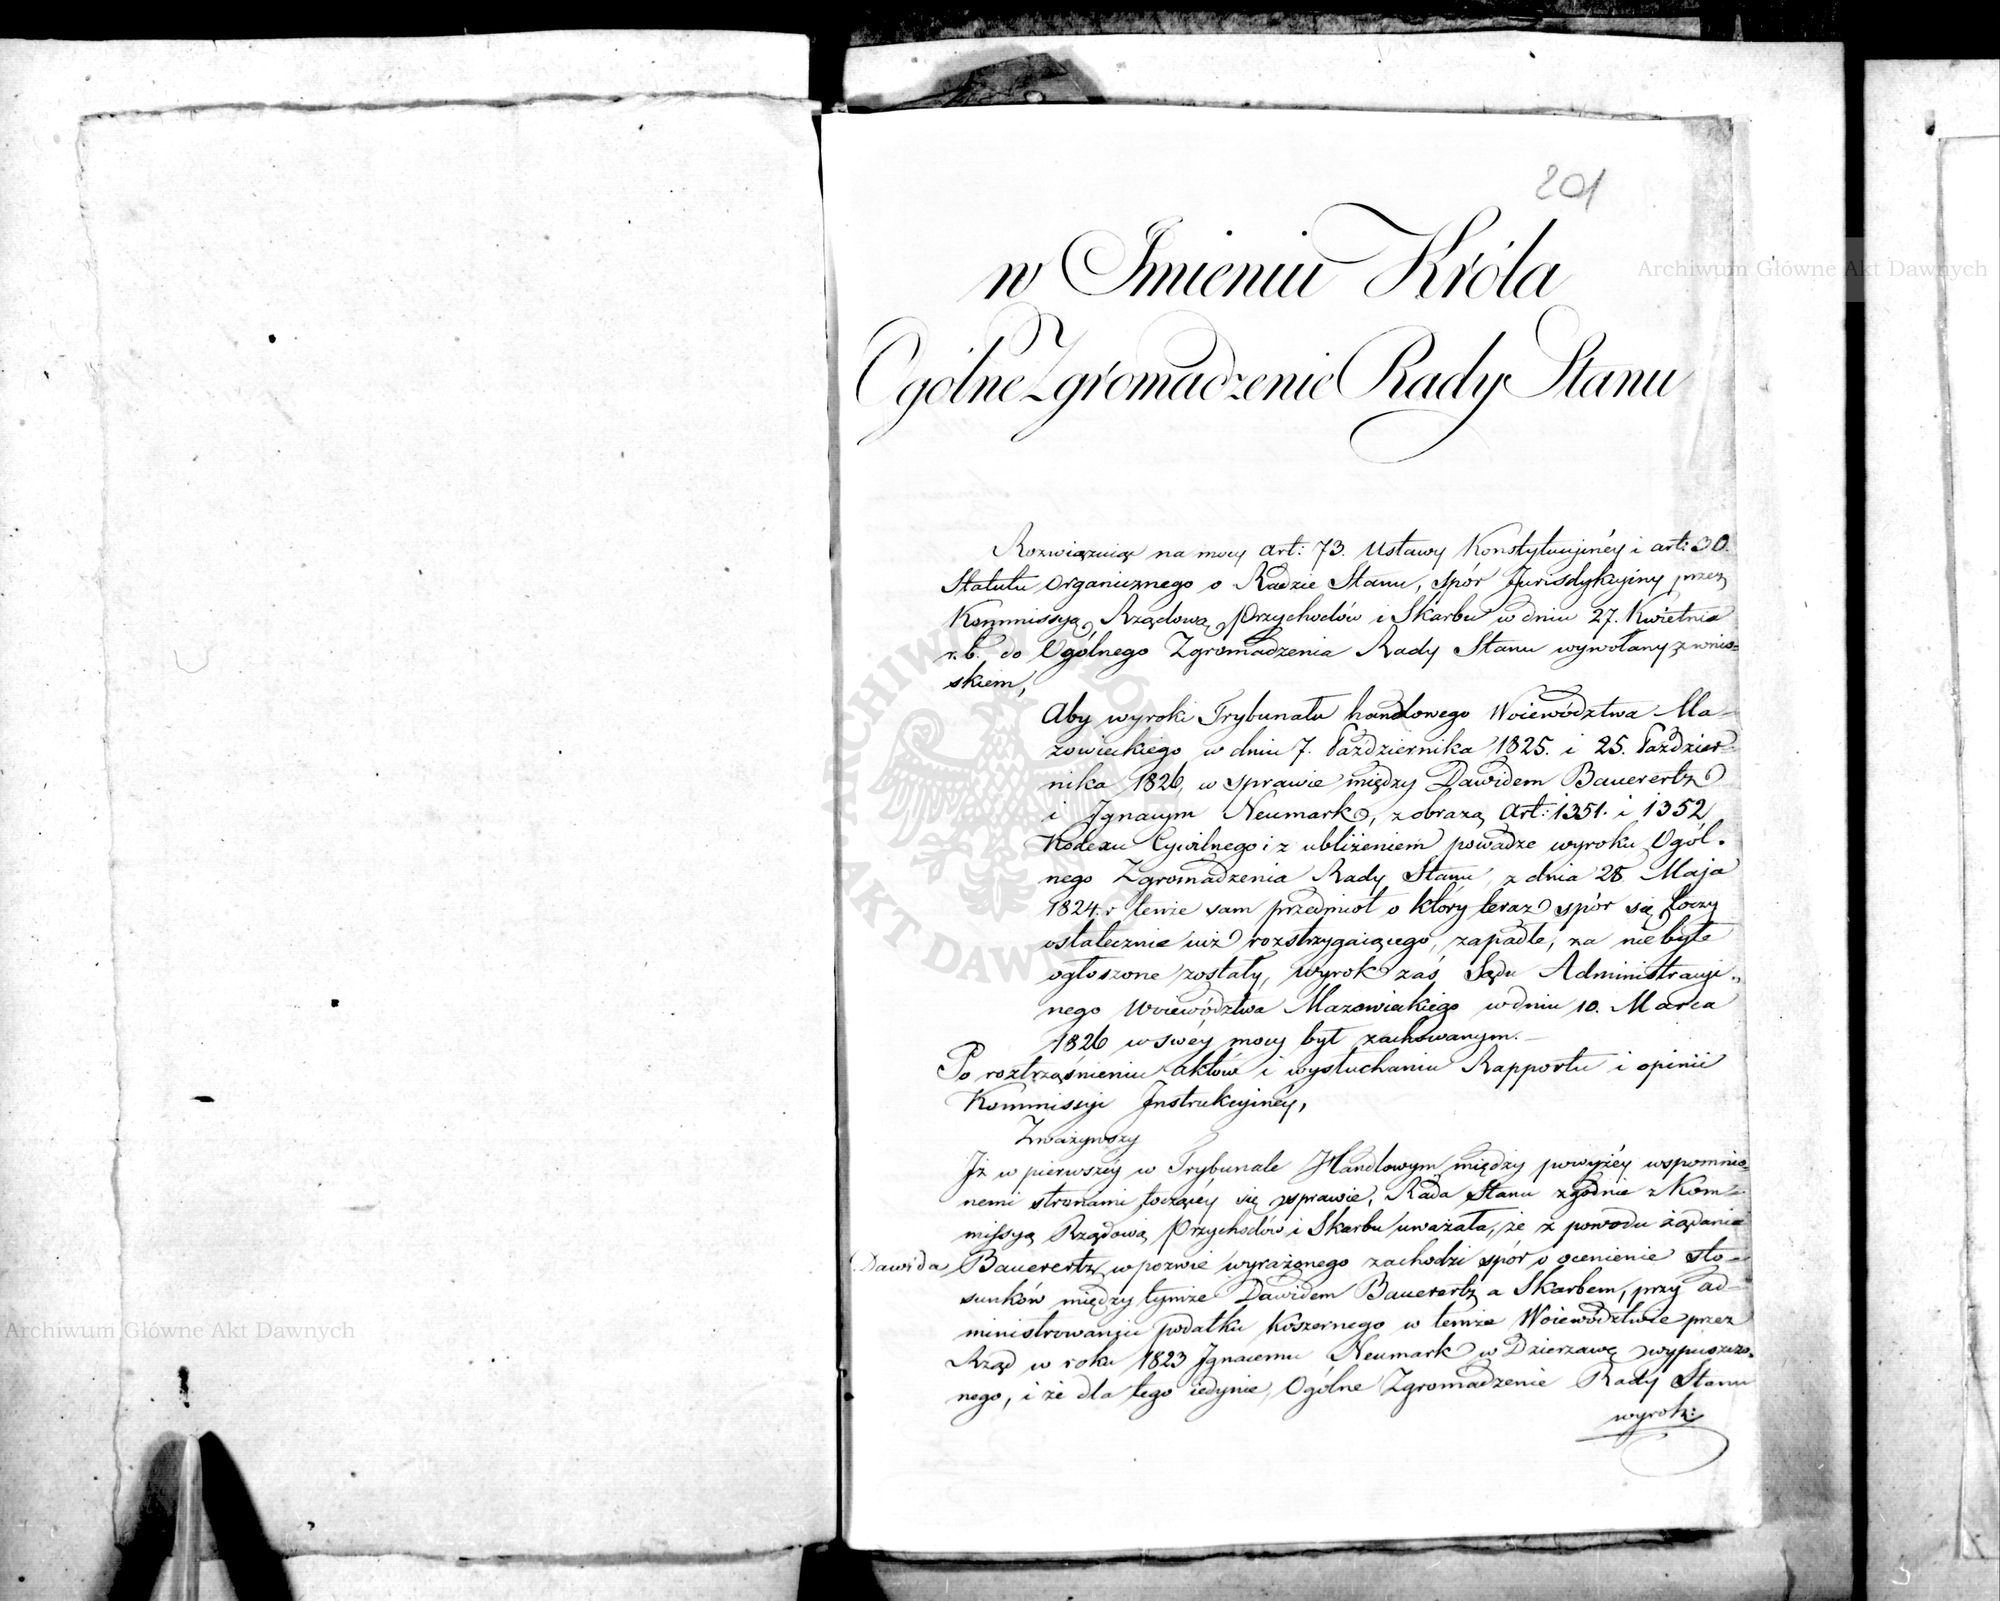 201
w Imieniu Króla
Ogólne Zgromadzenie Rady Stanu
Rozwiązuiąc na mocy art: 73. Ustawy Konstytucyjnéy i art: 30.
Statutu Organicznego o Radzie Stanu, spór Jurisdykcyiny przez
Kommissyą Rządową Przychodów i Skarbu w dniu 27. Kwietnia
r. b. do Ogólnego Zgromadzenia Rady Stanu wywołany z wnio-
skiem,
Aby wyroki Trybunału handlowego Woiewództwa Ma-
zowieckiego w dniu 7. Października 1825. i 25. Paździer-
nika 1826, w sprawie między Dawidem Bauerertz
i Ignacym Neumark, z obrazą Art: 1351. i 1352
Kodexu Cywilnego i z ubliżeniem powadze wyroku Ogól-
nego Zgromadzenia Rady Stanu z dnia 28 Maja
1824. r tenże sam przedmiot o który teraz spór się toczy
ostatecznie iuż rozstrzygaiącego, zapadłe, za niebyłe
ogłoszone zostały, wyrok zaś Sądu Administracyi-
nego Woiewództwa Mazowieckiego w dniu 10. Marca
1826 w swéy mocy był zachowanym.
Po roztrząśnieniu aktów i wysłuchaniu Rapportu i opinii
Kommissyi Instrukcyinéy,
Zważywszy
Iż w pierwszéy w Trybunale Handlowym między powyżéy wspomnio-
nemi stronami toczącéy się sprawie, Rada Stanu zgodnie z Kom-
missyą Rządową Przychodów i Skarbu uważała, że z powodu żądania
Dawida Bauerertz w pozwie wyrażonego zachodzi spór o ocenienie sto-
sunków między tymże Dawidem Bauerertz a Skarbem, przy ad-
ministrowaniu podatku Koszernego w temże Woiewództwie przez
Rząd w roku 1823 Ignacemu Neumark w Dzierzawę wypuszczo-
nego, i że dla tego iedynie, Ogólne Zgromadzenie Rady Stanu
wyrok:
Archiwum Główne Akt Dawnych
Archiwum Główne Akt Dawnych